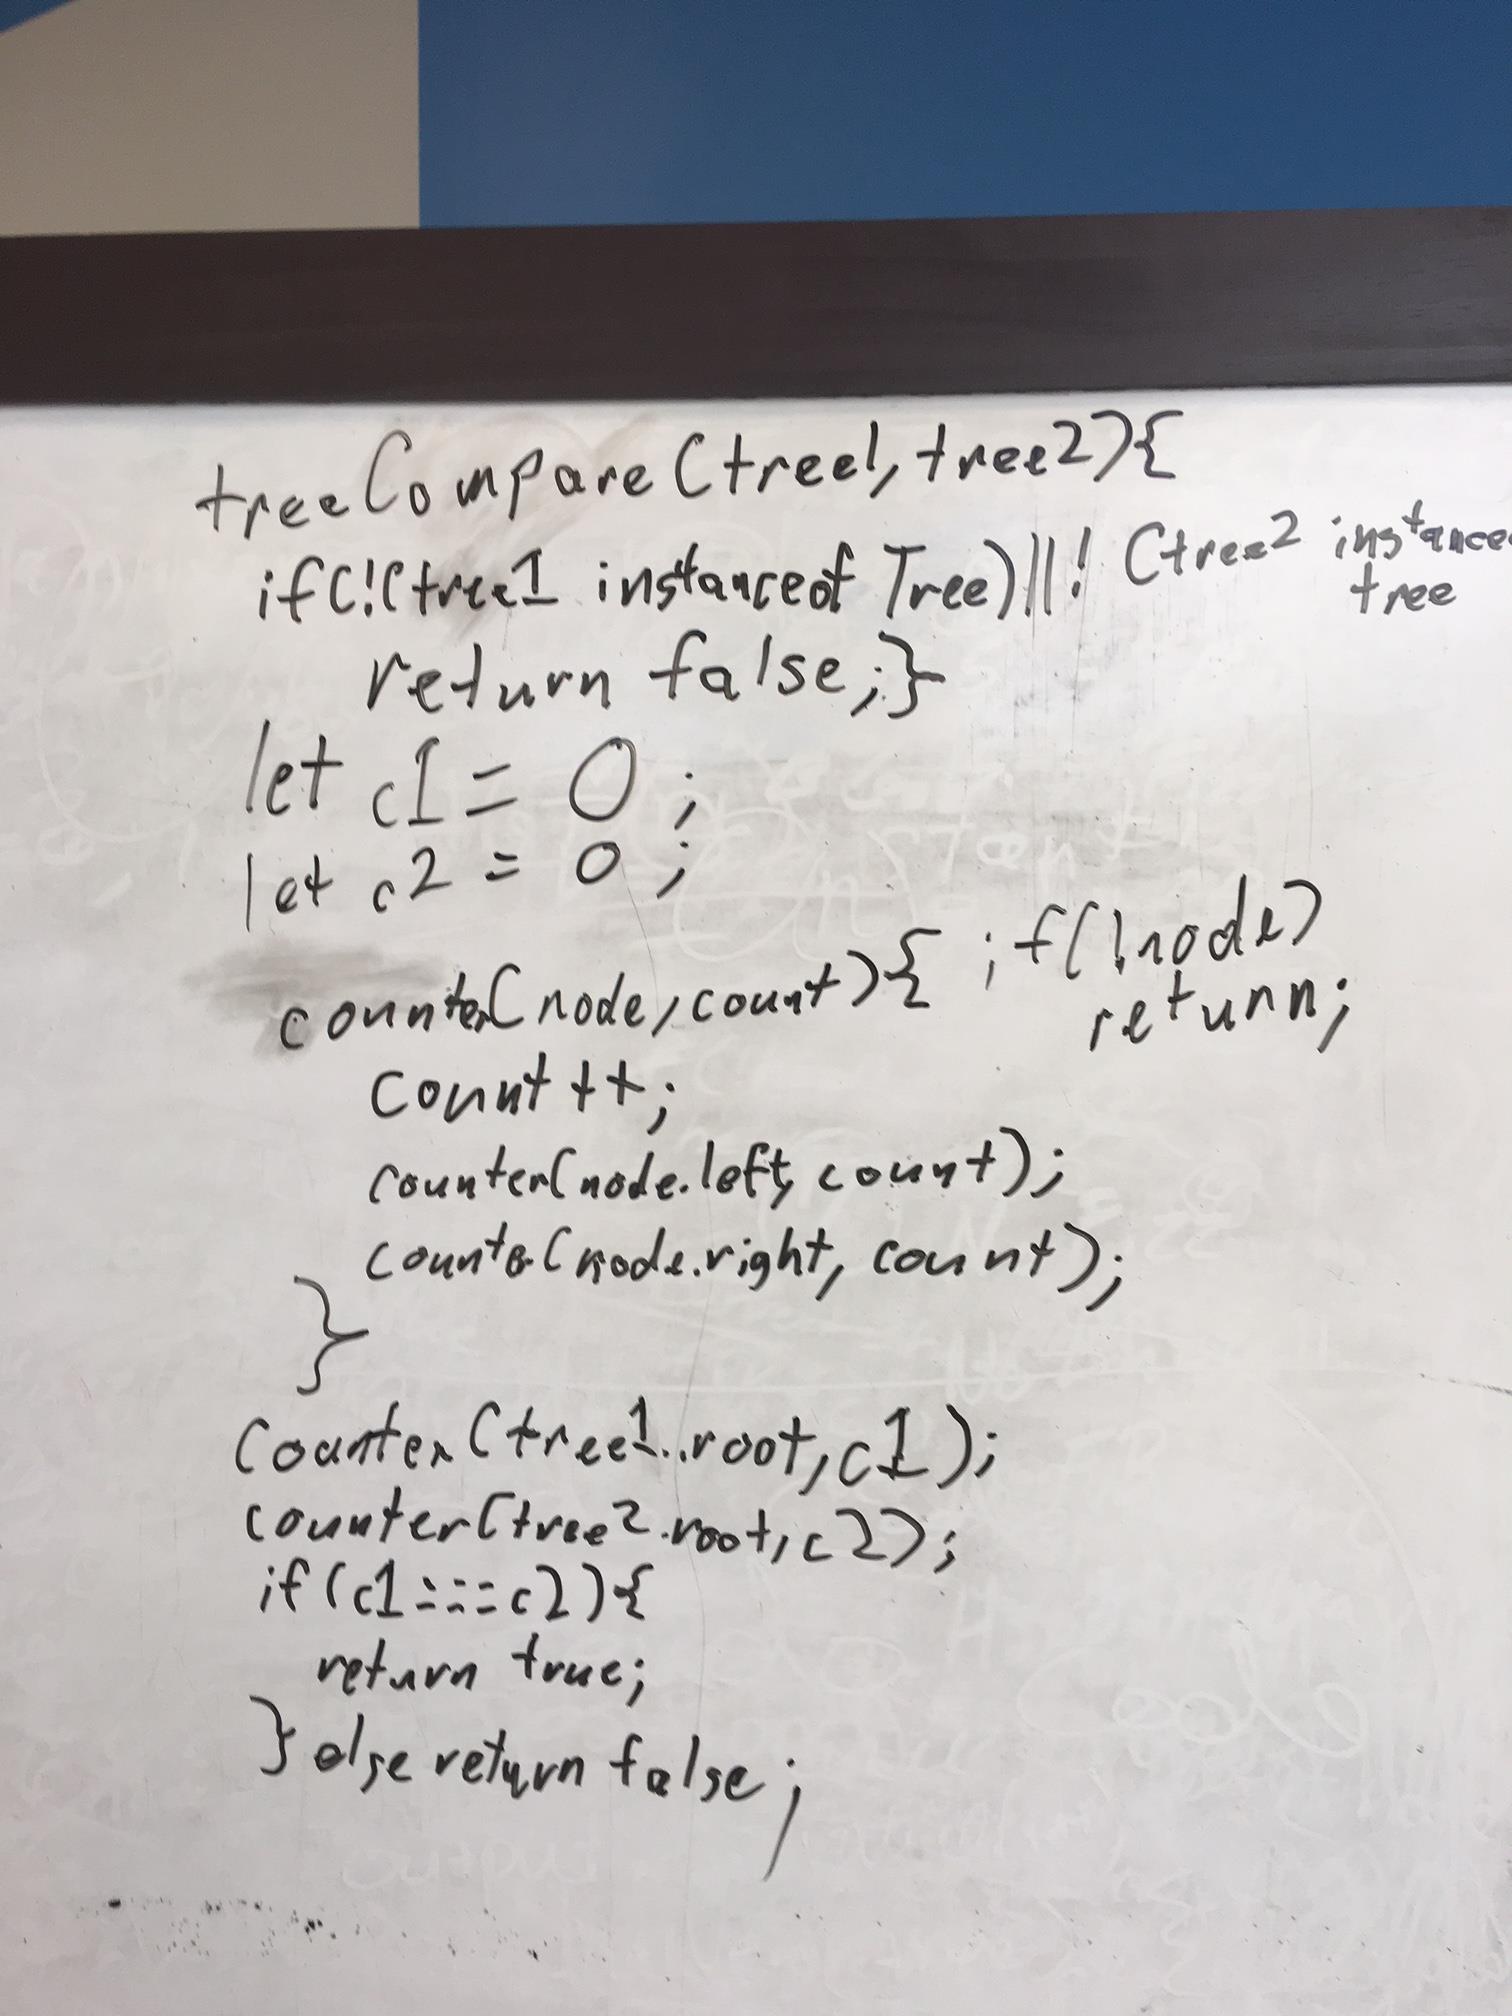 treeCompare(tree1, tree2){
if(!(tree1 instanceof Tree)||!(tree2 instance
tree
return false;}
let c1 = 0;
let c2 = 0;
counter(node, count){ if(!node)
return;
count++;
counter(node.left, count);
counter(node.right, count);
}
Counter(tree1..root, c1);
counter(tree2.root, c2);
if(c1===c2){
return true;
} else return false;